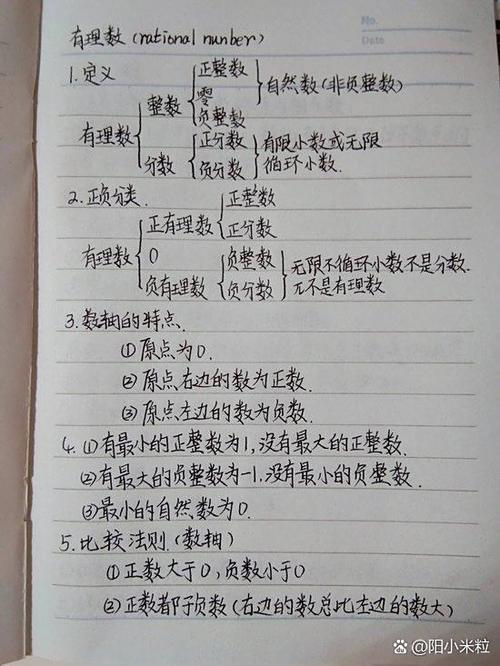 No.
Date
有理数(rational nunber)
1.定义
有理数 整数 正整数 零 负整数 自然数(非负整数)
分数 正分数 负分数 有限小数或无限循环小数.
2.正负分类.
有理数 正有理数 正整数 正分数
0
负有理数 负整数 负分数 无限不循环小数不是分数. π不是有理数
3.数轴的特点.
①原点为0.
②原点右边的数为正数.
③原点左边的数为负数.
4.①有最小的正整数为1,没有最大的正整数.
②有最大的负整数为-1.没有最小的负整数.
③最小的自然数为0.
5.比较法则(数轴)
①正数大于0,负数小于0
②正数都于负数(右边的数总比左边的数大)
@阳小米粒